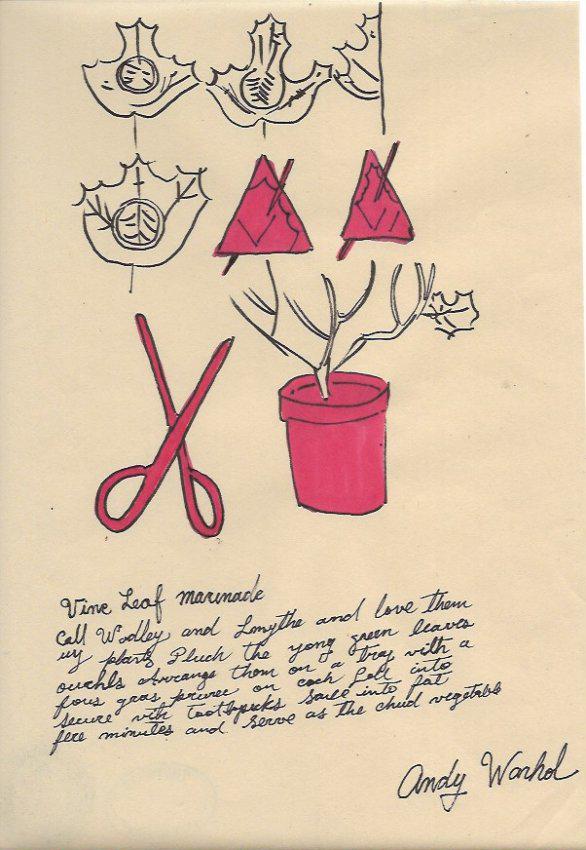 Vine Leaf marinade
Call Wodley and Lmythe and love them
uy plants Pluck the yong green leaves
Arrange them on a tray with a
fois gras puree on each Leaf into
secure with Toothpicks into fat
fere minutes and serve as the chud vegetable
Andy Warhol